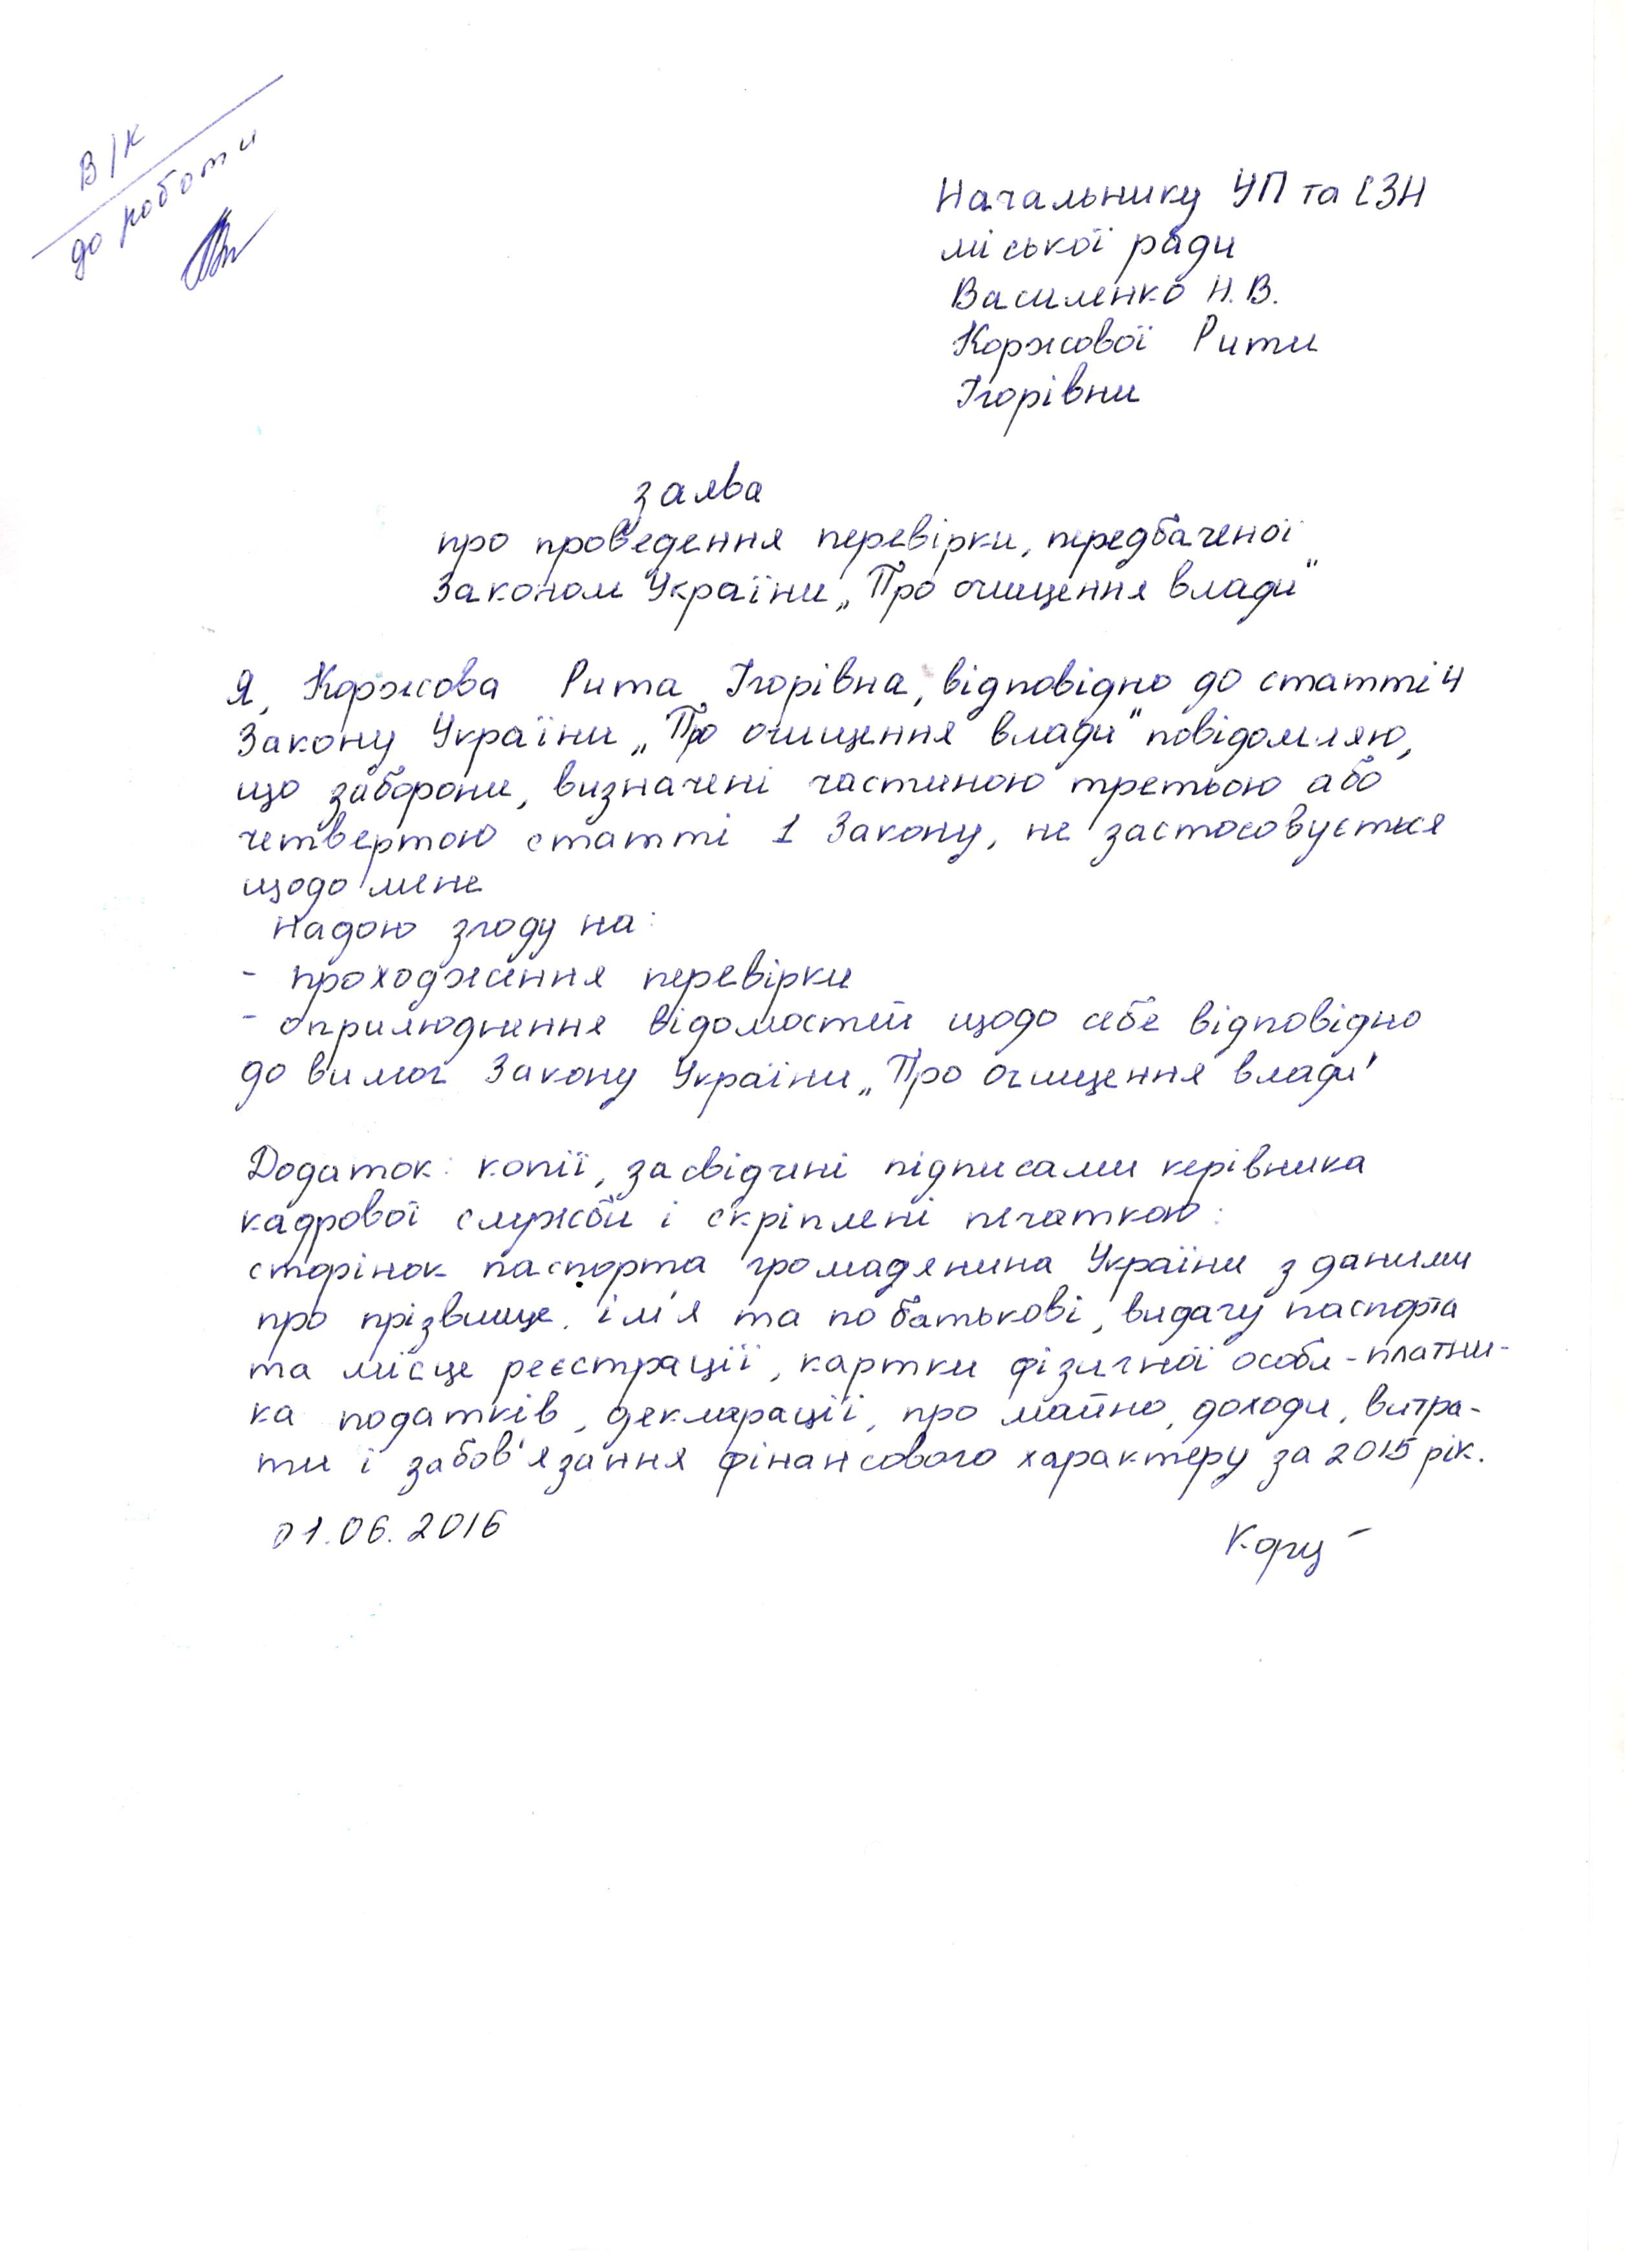 В/к
до роботи
Начальнику УП та СЗН
міської ради
Василенко Н.В.
Коржової Рити
Ігорівни
заява
про проведення перевірки, передбаченої
Законом України „Про очищення влади"
Я, Коржова Рита Ігорівна, відповідно до статті 4
Закону України „Про очищення влади" повідомляю,
що заборони, визначені частиною третьою або
четвертою статті 1 Закону, не застосовується
щодо мене
Надою згоду на:
- проходження перевірки
- оприлюднення відомостей щодо себе відповідно
до вимог Закону України „Про очищення влади"
Додаток: копії, засвідчені підписами керівника
кадрової служби і скріплені печаткою:
сторінок паспорта громадянина України з даними
про прізвище, ім'я та по батькові, видачу паспорта
та місце реєстрації, картки фізичної особи-платни-
ка податків, декларації, про майно, доходи, витра-
ти і забов'язання фінансового характеру за 2015 рік.
01.06.2016